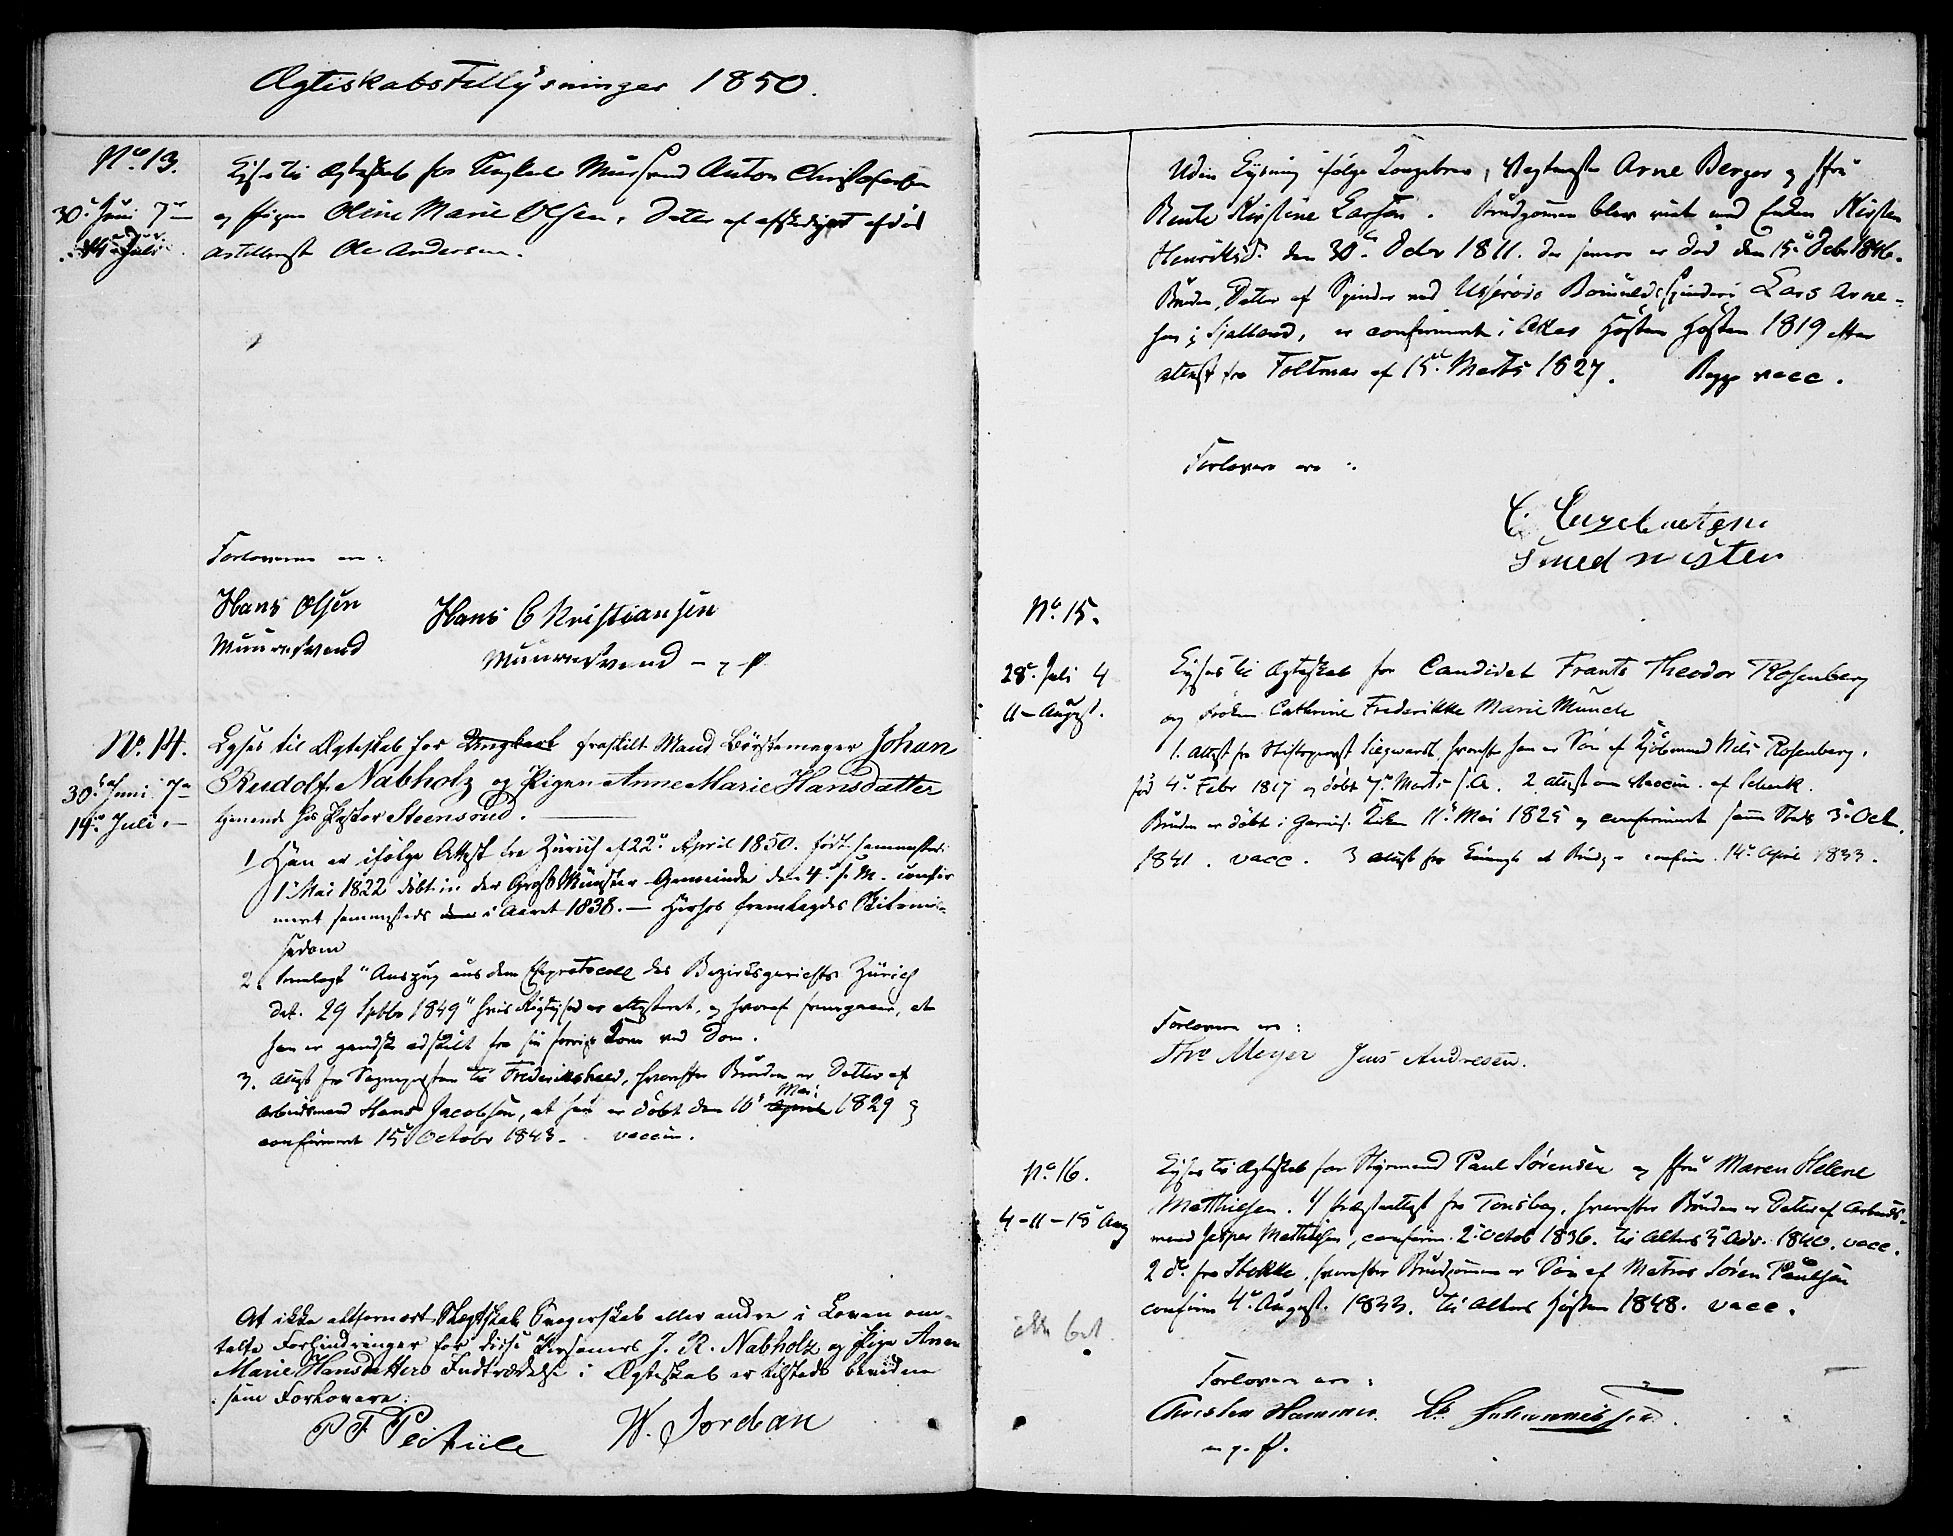 Ægteskabs Tillysninger 1850.
No. 13.
30te Juni 7de
14de Juli
Lyses til Ægteskab for Ungkarl Muursvend Anton Christofersen
og Pigen Oline Marie Olsen, Datter af afskediget afdød
Artillerist Ole Andersen.
Forloverne ere:
Hans Olsen Hans Christiansen
Muursvend Muursvend m. p. P.
No. 14.
30te Juni 7de
14de Juli.
Lyses til Ægteskab for Ungkarl fraskilt Mand Börstemager Johan
Rudolf Nabholz og Pigen Anne Marie Hansdatter
tjenende hos Pastor Steensrud.
1 Han er ifølge Attest fra Zürich af 22de April 1850. født sammesteds
1 Mai 1822 döbt in der Groß Münster Gemeinde den 4de s. M. confir
meret sammesteds den i Aaret 1838. — Hjoos fremlagdes
sedom
2 fremlagt "Auszug aus dem Eheprotocoll des Bezirksgerichts Zürich
dat. 29 Septbr 1849" hvis Rigtighed er attesteret, og hvoraf fremgaaer, at
han er gandske adskilt fra sin forrige Kone ved Dom.
3. Attest fra Sognepresten til Frederikshald, hvorefter Bruden er Datter af
Arbeidsmand Hans Jacobsen, at hun er döbt den 10de April Mai 1829 og
confirmeret 15de October 1843. vaccin.
At ikke attforvert Slegtskab Svogerskab eller andre i Loven om-
talte Forhindringer for disse Personers J. R. Nabholz og Pige Anne
Marie Hansdatters Indtrædelse i Ægteskab er tilstede bevidne
som Forlovere:
W. Jordan
Uden Lysning ifølge Kongebrev, Vægtmester Arne Berger og Jfru
Bente Kirstine Larsen. Brudgommen blev viet med Enken Kirsten
Henriksd. den 30te Octbr 1811. der senere er død den 15de Octbr 1846.
Bruden, Datter af Spinder ved Usserøds Bomuldsspinderi Lars Arne-
sen i Sjælland, er confirmeret i Høsten 1819 efter
Attest fra af 15de Marts 1827. Begge vacc.
Forlovere ere:
Smedmester
No. 15.
28de Juli 4
11 August.
Lyses til Ægteskab for Candidat Frants Theodor Rosenberg
og Frøken Cathrine Frederikke Marie Munch
1. Attest fra Stiftsprovst hvorefter han er Søn af Kjöbmand Nils Rosenberg,
fød 4de Febr 1817 og döbt 7de Marts s. A. 2. Attest om Vaccin. af Schenk.
Bruden er döbt i Garnis. Kirken 11te Mai 1825 og confirmeret samme Steds 3de Oct.
1841. vacc. 3 Attest fra at Brudg. confirm. 14de April 1833.
Forlovere ere:
Thv Meyer Jens Andresen.
No. 16.
4-11-18 Aug
Lyses til Ægteskab for Styrmand Paul Sørensen og Jfru Maren Helene
Matthisen. 1/ Præsteattest fra Tønsberg, hvorefter Bruden er Datter af Arbeids-
mand Jesper Matthisen, confirm. 2 Octob 1836. til Alters 3 Adv. 1840. vacc.
2 do fra Stokke, hvorefter Brudgommen er Søn af Matros Søren Paulsen
confirm 4de August 1833. til Alters Høsten 1848. vacc.
ikke bet.
Forlovere ere:
Christen Hammer. Johannessen.
m. p. P.